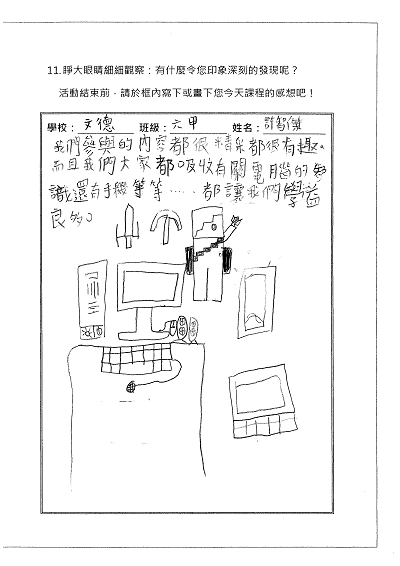 11.睜大眼睛細細觀察：有什麼令您印象深刻的發現呢？
活動結束前，請於框內寫下或畫下您今天課程的感想吧！
學校：文德 班級：六甲 姓名：許智傑
我們參與的內容都很精采都很有趣。
而且我們大家都吸收有關電腦的知
識還有手機等等……都讓我們學益
良多。